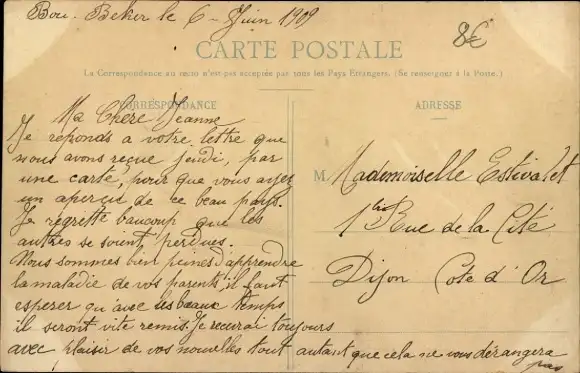 Bou-Beker le 6 Juin 1909
8€
CARTE POSTALE
La Correspondance au recto n'est pas acceptée par tous les Pays Etrangers. (Se renseigner à la Poste.)
CORRESPONDANCE
Ma Chère Jeanne
Je reponds a votre lettre que
nous avons reçue jeudi, par
une carte, pour que vous ayez
un aperçus de ce beau pays.
Je regrette beaucoup que les
autres se soient perdues.
Nous sommes bien peinés d'apprendre
la maladie de vos parents, il faut
esperer qu'avec les beaux temps
il seront vite remis. Je recevrai toujours
avec plaisir de vos nouvelles tout autant que cela ne vous dérangera
pas
ADRESSE
M. Mademoiselle Estivalet
1 bis Rue de la Cité
Dijon Cote d'Or